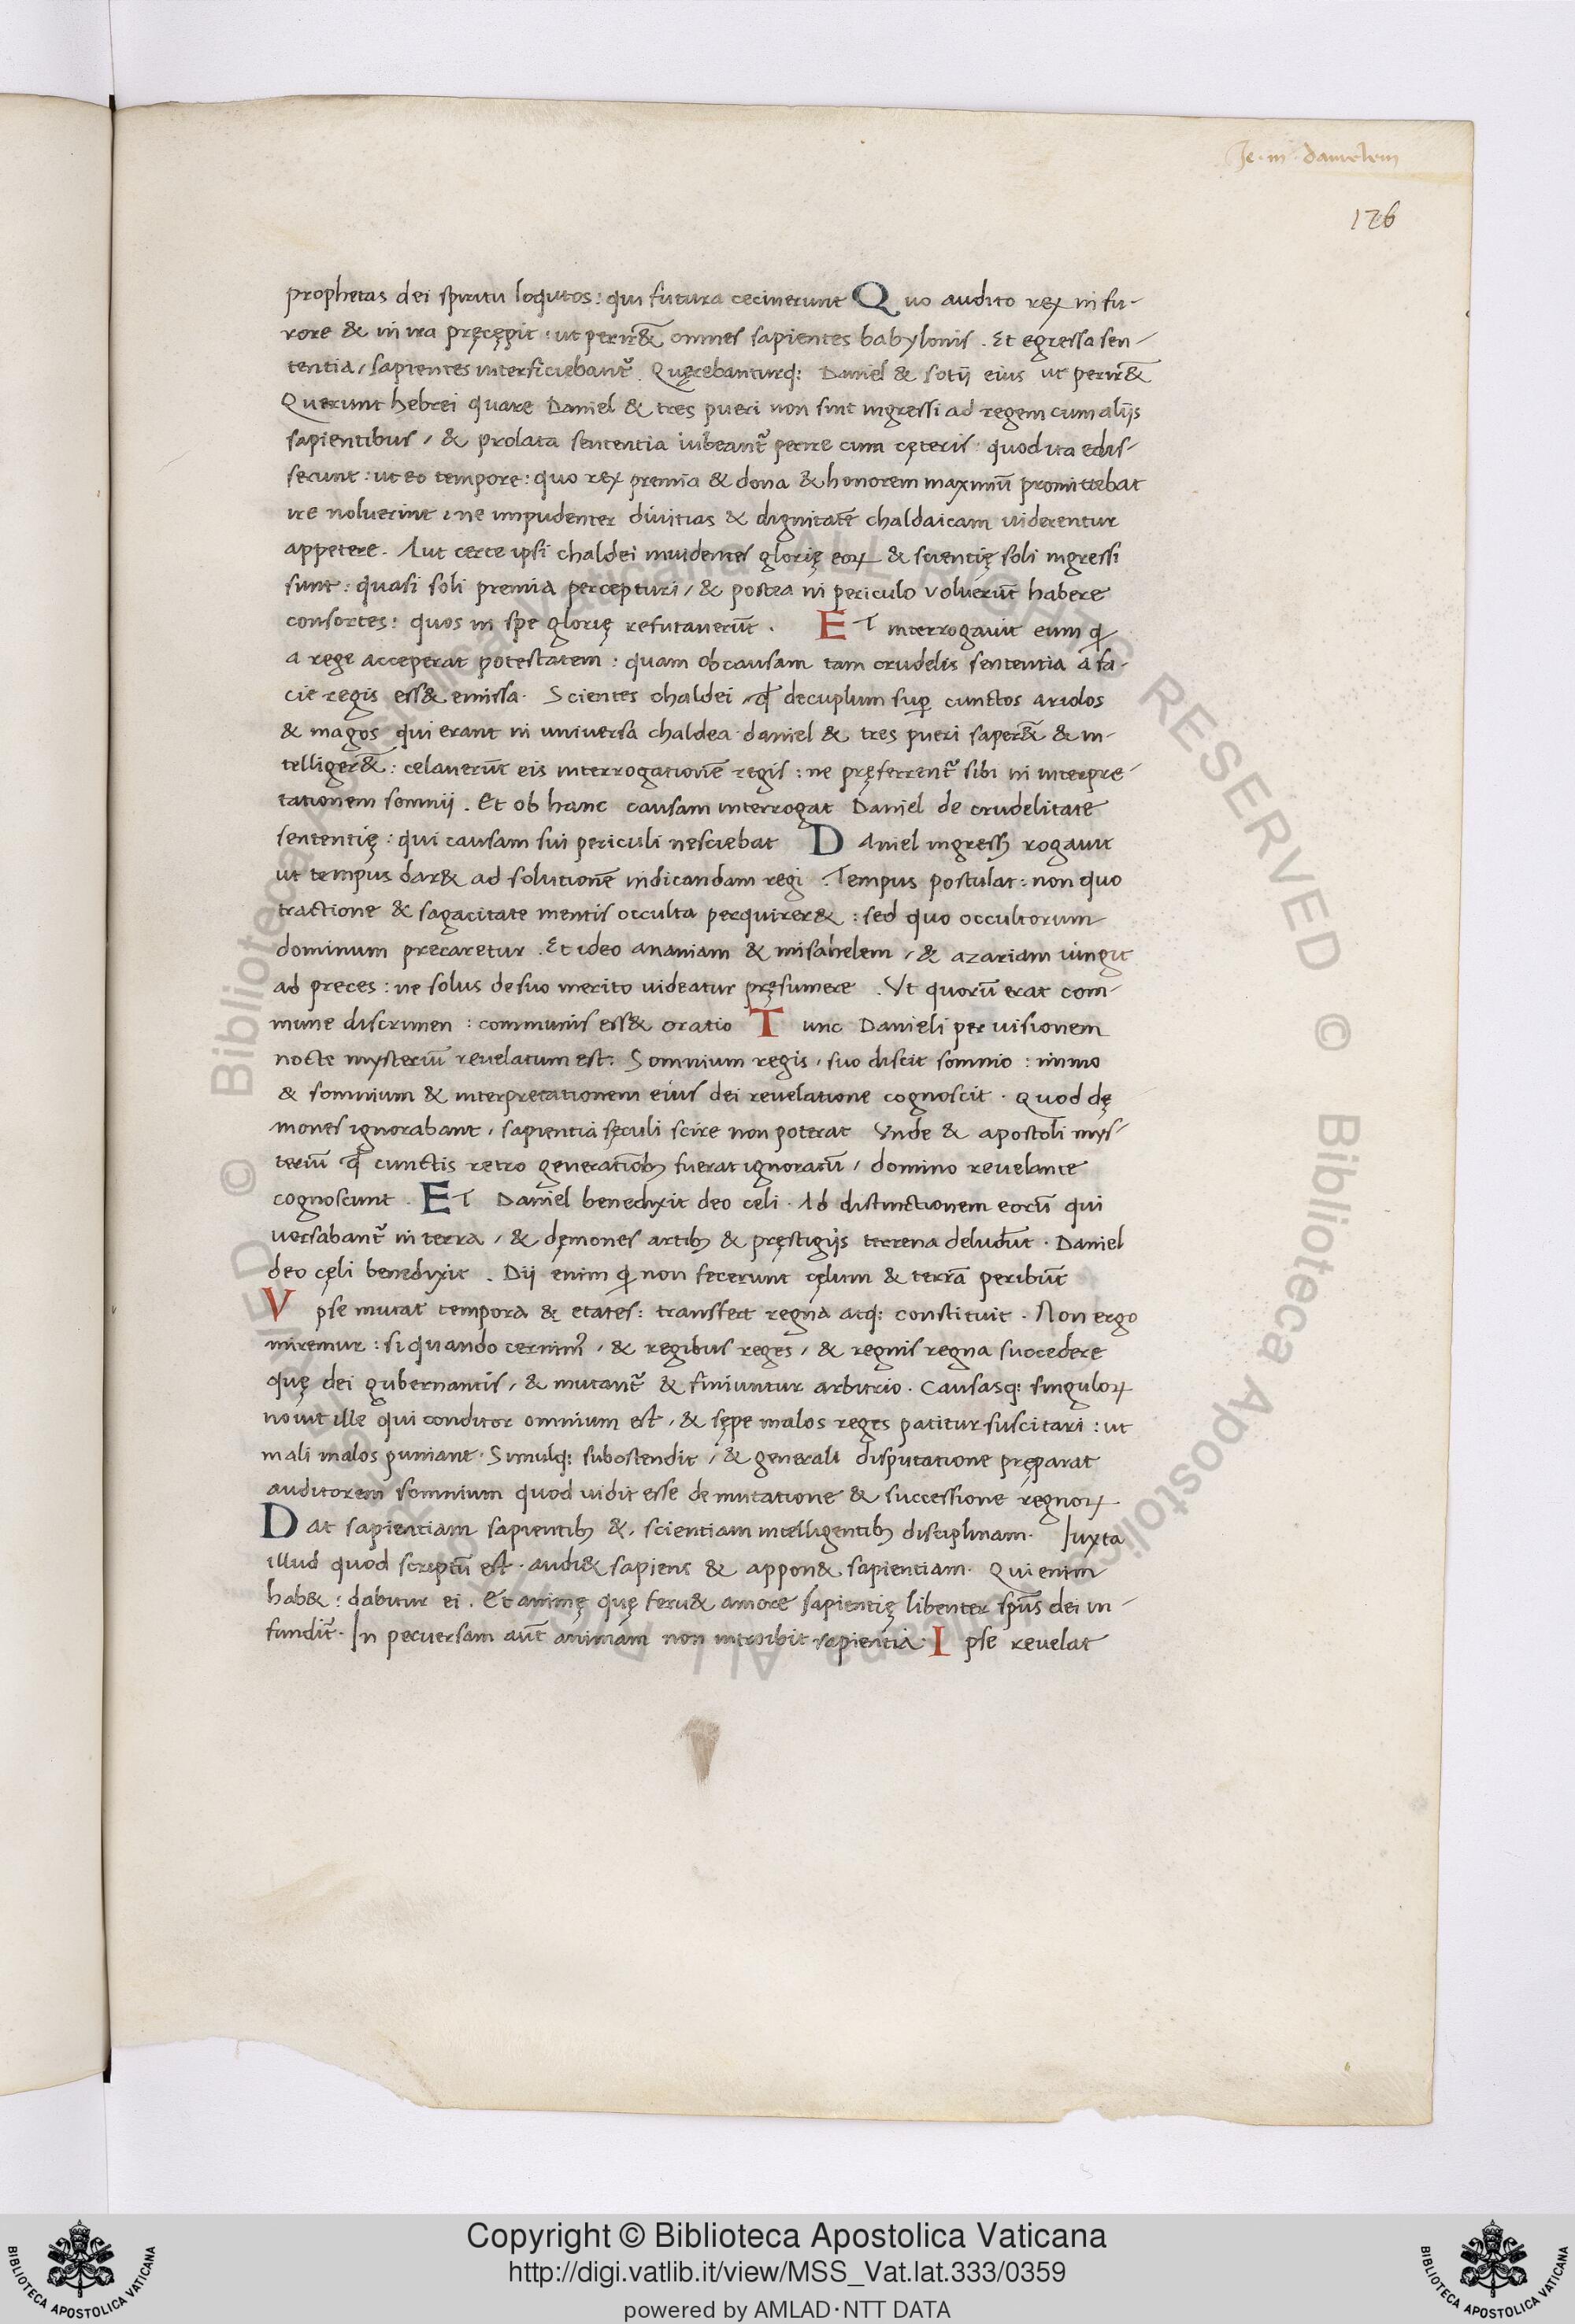 Je · in · danielem
176
prophetas dei spiritu loqutos : qui futura cecinerunt Quo audito rex in fu-
rore & in ira pręcępit : ut perir&̄ omnes sapientes babylonis . Et egressa sen-
tentia , sapientes interficiebant᷑ . Quęrebanturq; Daniel & sotij eius ut perir&̄
Querunt hebrei quare Daniel & tres pueri non sint ingressi ad regem cum alijs
sapientibus , & prolata sententia iubeant᷑ perire cum cęteris : quod ita edis-
serunt : ut eo tempore : quo rex premia & dona & honorem maximū promittebat
ire noluerint , ne impudenter divitias & dignitatē chaldaicam viderentur
appetere . Aut certe ipsi chaldei invidentes glorię eoꝝ & scientię soli ingressi
sunt : quasi soli premia percepturi , & postea in periculo voluerūt habere
consortes : quos in spe glorię refutaverūt . ET interrogavit eum ꝗ
a rege acceperat potestatem : quam ob causam tam crudelis sententia a fa-
cie regis ess& emissa . Scientes chaldei , qđ decuplum suꝑ cunctos ariolos
& magos qui erant in universa chaldea daniel & tres pueri saper&̄ & in-
telliger&̄ : celaverūt eis interrogationē regis : ne pręferrent᷑ sibi in interpre-
tationem somnij . Et ob hanc causam interrogat Daniel de crudelitate
sententię : qui causam sui periculi nesciebat DAniel ingressꝰ rogavit
ut tempus dar& ad solutionē indicandam regi . Tempus postulat : non quo
tractione & sagacitate mentis occulta perquirer& : sed quo occultorum
dominum precaretur . Et ideo ananiam & misahelem , & azariam iungit
ad preces : ne solus de suo merito videatur pręsumere . Ut quorū erat com-
mune discrimen : communis ess& oratio Tunc Danieli per visionem
nocte mysteriū revelatum est . Somnium regis , suo discit somnio : immo
& somnium & interpretationem eius dei revelatione cognoscit . Quod dę
mones ignorabant , sapientia sęculi scire non poterat Unde & apostoli mys-
teriū qđ cunctis retro generatiōibꝫ fuerat ignoratū , domino revelante
cognoscunt . ET Daniel benedixit deo celi . Ad distinctionem eorū qui
versabant᷑ in terra , & dęmones artibꝫ & pręstigijs terrena deludūt . Daniel
deo cęli benedixit . Dij enim ꝗ non fecerunt cęlum & terrā peribūt
Vpse mutat tempora & etates : transfert regna atq; constituit . Non ergo
miremur : si quando cernimꝰ , & regibus reges , & regnis regna succedere
quę dei gubernantis , & mutant᷑ & finiuntur arbitrio . Causasq; singuloꝝ
novit ille qui conditor omnium est , & sępe malos reges patitur suscitari : ut
mali malos puniant . Simulq; subostendit , & generali disputatione pręparat
auditorem somnium quod vidit esse de mutatione & successione regnoꝝ
Dat sapientiam sapientibꝫ & , scientiam intelligentibꝫ disciplinam . Juxta
illud quod scriptū est . audi& sapiens & appon& sapientiam . Qui enim
hab& : dabitur ei . Et animę quę ferv& amore sapientię libenter sp̄us dei in-
fundit᷑ . In perversam aūt animam non introibit sapientia . Ipse revelat
Copyright © Biblioteca Apostolica Vaticana
http://digi.vatlib.it/view/MSS_Vat.lat.333/0359
powered by AMLAD·NTT DATA
BIBLIOTECA APOSTOLICA VATICANA
BIBLIOTECA APOSTOLICA VATICANA